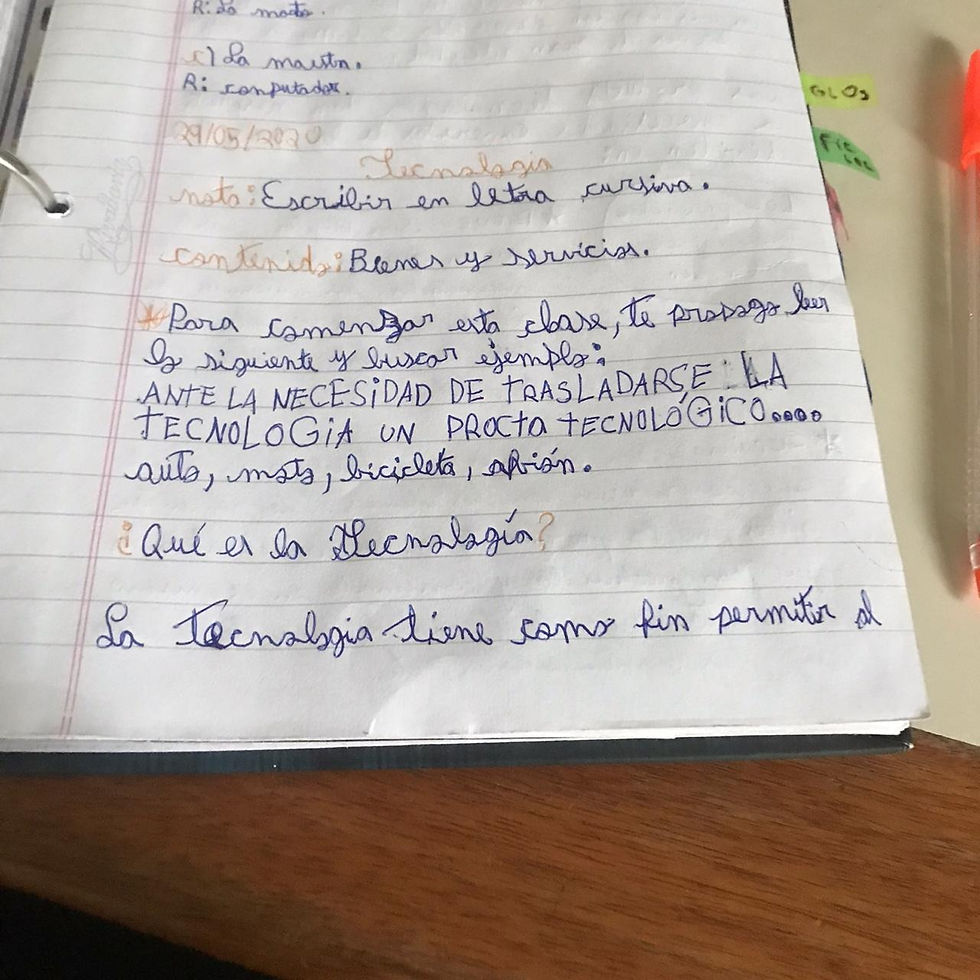 R: La moto.
c) La maestra.
R: computador.
29/05/2020
Tecnologia
nota: Escribir en letra cursiva.
contenido: Bienes y servicios.
*Para comenzar esta clase, te propago leer
lo siguiente y buscar ejemplo:
ANTE LA NECESIDAD DE TRASLADARSE : LA
TECNOLOGIA UN PROCTO TECNOLÓGICO....
auto, moto, bicicleta, abión.
¿Qué es la Tecnología?
La Tecnologia tiene como fin permitir al
Rivadavia
GLOS